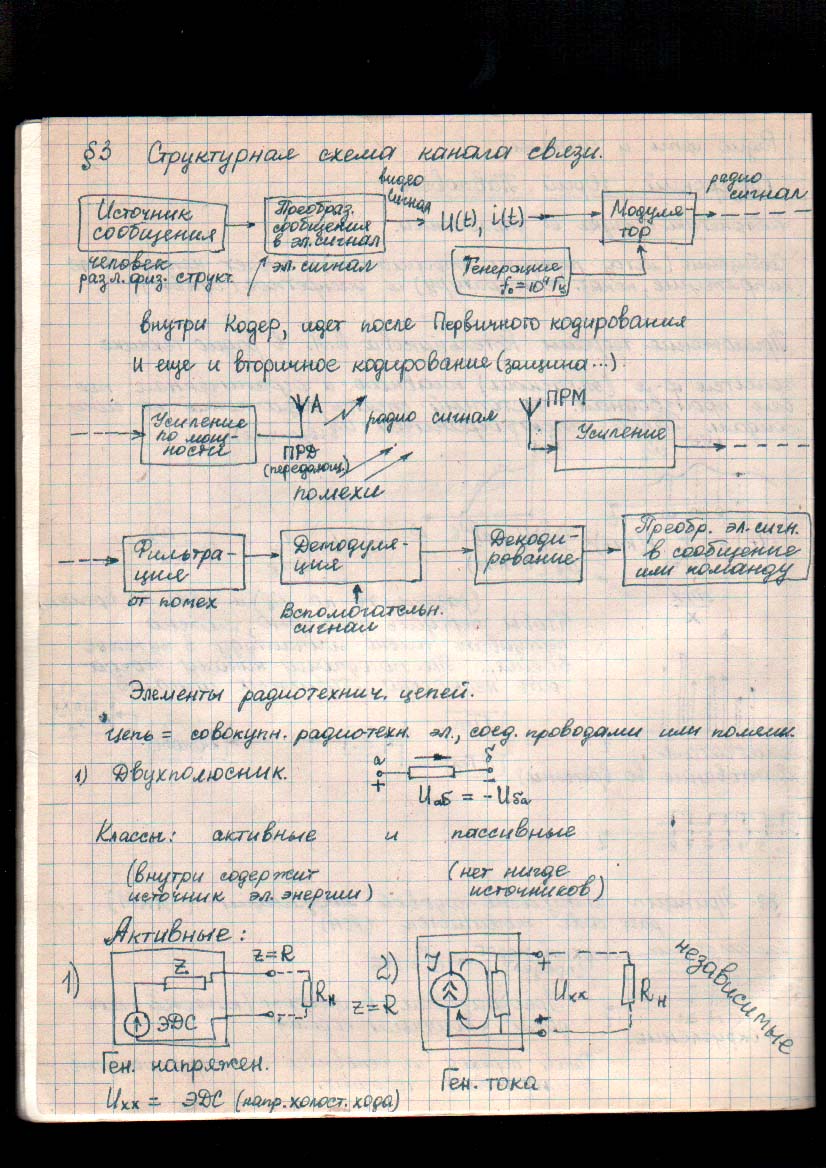 §3 Структурная схема канала связи.
Источник сообщения
человек
разл. физ. структ.
Преобраз. сообщения в эл. сигнал
эл. сигнал
видео сигнал
U(t), i(t)
Модулятор
радио сигнал
Генерация
внутри Кодер, идет после Первичного кодирования
и еще и вторичное кодирование (защина...)
Усиление по мощности
А
ПРД
(передающ.)
радио сигнал
помехи
ПРМ
Усиление
Фильтрация
от помех
Демодуляция
Вспомогательн.
сигнал
Декодирование
Преобр. эл. сигн.
в сообщение
или команду
Элементы радиотехнич. цепей.
цепь = совокупн. радиотехн. эл., соед. проводами или полями.
1) Двухполюсник.
а б
+ -
Uаб = -Uба
Классы: активные и пассивные
(внутри содержит (нет нигде
источник эл. энергии) источников)
Активные:
1) Z z=R Rн
ЭДС
Ген. напряжен.
Uхх = ЭДС (напр. холост. хода)
2) J
z=R
+
Uхх Rн
Ген. тока
независимые